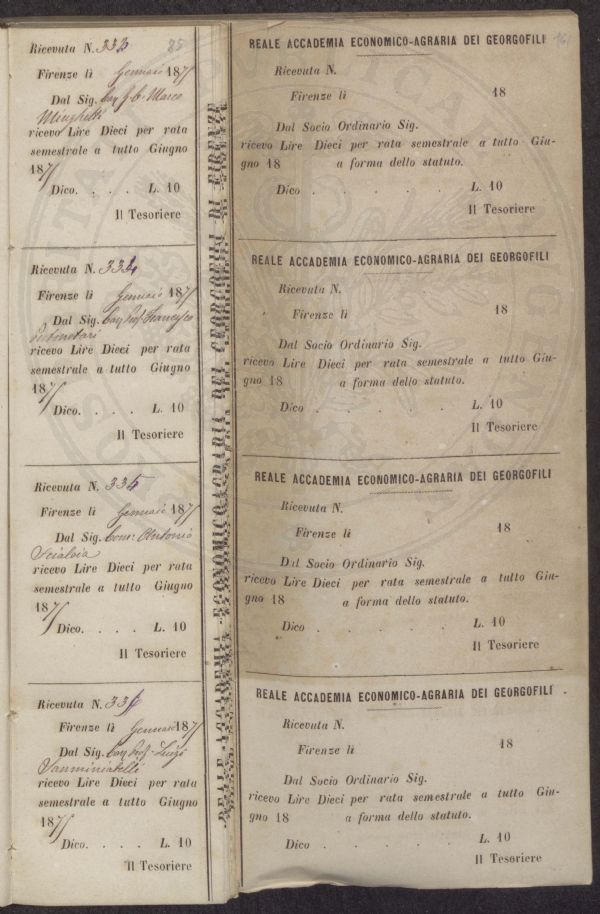 Ricevuta N. 333 85
Firenze li Gennaio 187
Dal Sig. Marco
Minghetti
ricevo Lire Dieci per rata
semestrale a tutto Giugno
187
Dico. . . . L. 10
Il Tesoriere
Ricevuta N. 334
Firenze li Gennaio 187
Dal Sig. Cav. Prof. Francesco
ricevo Lire Dieci per rata
semestrale a tutto Giugno
187
Dico. . . . L. 10
Il Tesoriere
Ricevuta N. 335
Firenze li Gennaio 187
Dal Sig. Comr. Antonio
Scialoia
ricevo Lire Dieci per rata
semestrale a tutto Giugno
187
Dico. . . . L. 10
Il Tesoriere
Ricevuta N. 336
Firenze li Gennaio 187
Dal Sig. Cav. Prof. Luigi
Sanminiatelli
ricevo Lire Dieci per rata
semestrale a tutto Giugno
187
Dico. . . . L. 10
Il Tesoriere
REALE ACCADEMIA ECONOMICO-AGRARIA DEI GEORGOFILI DI FIRENZE
REALE ACCADEMIA ECONOMICO-AGRARIA DEI GEORGOFILI
Ricevuta N.
Firenze li 18
Dal Socio Ordinario Sig.
ricevo Lire Dieci per rata semestrale a tutto Giu-
gno 18 a forma dello statuto.
Dico . . . . . L. 10
Il Tesoriere
REALE ACCADEMIA ECONOMICO-AGRARIA DEI GEORGOFILI
Ricevuta N.
Firenze li 18
Dal Socio Ordinario Sig.
ricevo Lire Dieci per rata semestrale a tutto Giu-
gno 18 a forma dello statuto.
Dico . . . . . L. 10
Il Tesoriere
REALE ACCADEMIA ECONOMICO-AGRARIA DEI GEORGOFILI
Ricevuta N.
Firenze li 18
Dal Socio Ordinario Sig.
ricevo Lire Dieci per rata semestrale a tutto Giu-
gno 18 a forma dello statuto.
Dico . . . . . L. 10
Il Tesoriere
REALE ACCADEMIA ECONOMICO-AGRARIA DEI GEORGOFILI
Ricevuta N.
Firenze li 18
Dal Socio Ordinario Sig.
ricevo Lire Dieci per rata semestrale a tutto Giu-
gno 18 a forma dello statuto.
Dico . . . . . L. 10
Il Tesoriere